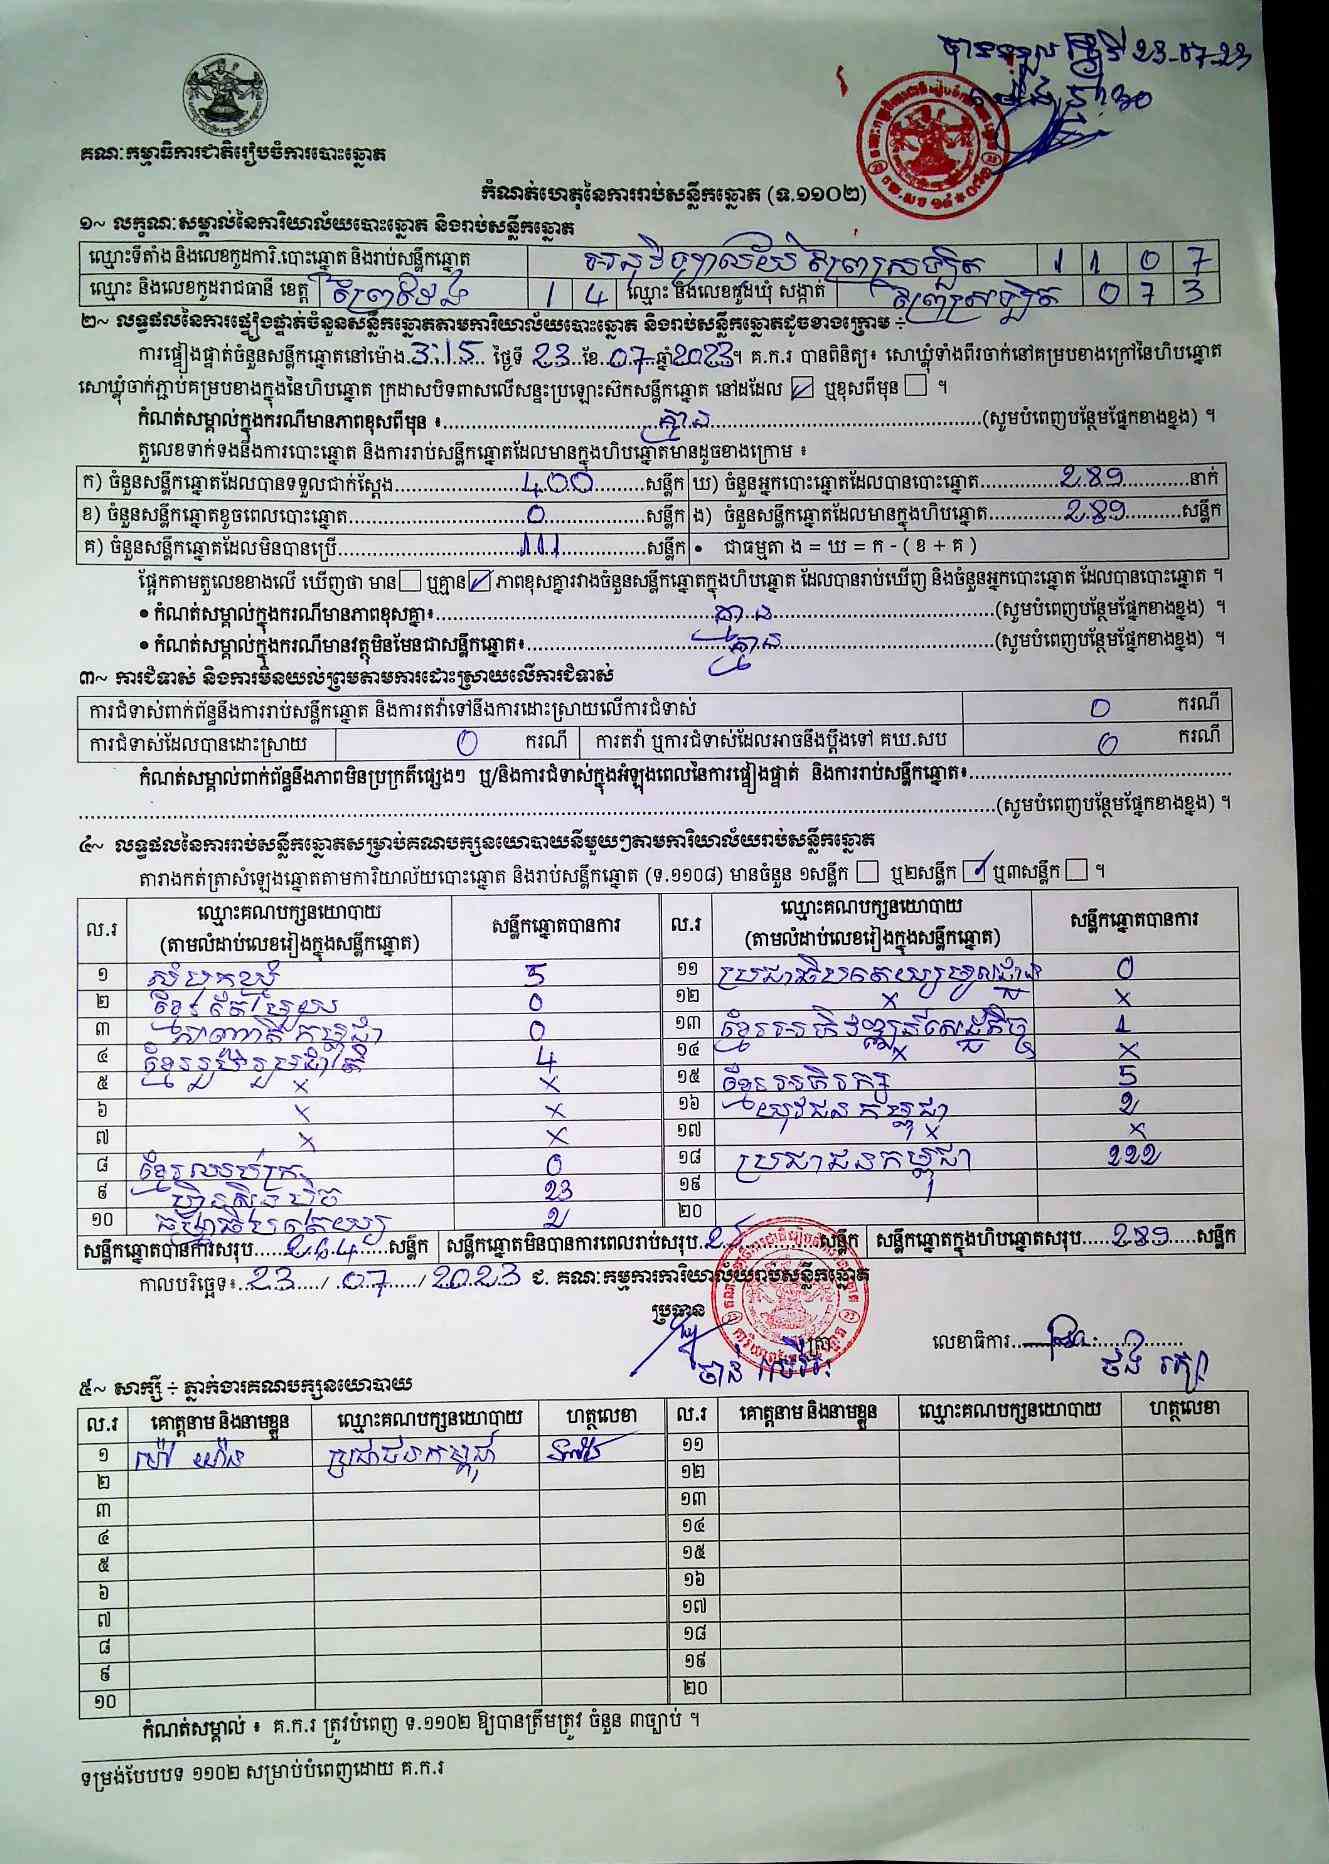 បានទទួល ថ្ងៃទី 23-07-23
គណៈកម្មាធិការជាតិរៀបចំការបោះឆ្នោត
កំណត់ហេតុនៃការរាប់សន្លឹកឆ្នោត (ទ.១១០២)
១~ លក្ខណៈសម្គាល់នៃការិយាល័យបោះឆ្នោត និងរាប់សន្លឹកឆ្នោត
ឈ្មោះទីតាំង និងលេខកូដការិ.បោះឆ្នោត និងរាប់សន្លឹកឆ្នោត អនុវិទ្យាល័យ ព្រៃស្រឡិត 1 1 0 7
ឈ្មោះ និងលេខកូដរាជធានី ខេត្ត ព្រៃវែង 1 4 ឈ្មោះ និងលេខកូដឃុំ សង្កាត់ ព្រៃស្រឡិត 0 7 3
២~ លទ្ធផលនៃការផ្ទៀងផ្ទាត់ចំនួនសន្លឹកឆ្នោតតាមការិយាល័យបោះឆ្នោត និងរាប់សន្លឹកឆ្នោតដូចខាងក្រោម ÷
ការផ្ទៀងផ្ទាត់ចំនួនសន្លឹកឆ្នោតនៅម៉ោង 3:15 ថ្ងៃទី 23 ខែ 07 ឆ្នាំ 2023។ គ.ក.រ បានពិនិត្យ៖ សោឃ្លុំទាំងពីរចាក់នៅគម្របខាងក្រៅនៃហិបឆ្នោត
សោឃ្លុំចាក់ភ្ជាប់គម្របខាងក្នុងនៃហិបឆ្នោត ក្រដាសបិទពាសលើសន្ទះប្រឡោះស៊កសន្លឹកឆ្នោត នៅដដែល ☑ ឬខុសពីមុន ☐ ។
កំណត់សម្គាល់ក្នុងករណីមានភាពខុសពីមុន ៖ គ្មាន (សូមបំពេញបន្ថែមផ្នែកខាងខ្នង) ។
តួលេខទាក់ទងនឹងការបោះឆ្នោត និងការរាប់សន្លឹកឆ្នោតដែលមានក្នុងហិបឆ្នោតមានដូចខាងក្រោម ៖
ក) ចំនួនសន្លឹកឆ្នោតដែលបានទទួលជាក់ស្តែង 400 សន្លឹក ឃ) ចំនួនអ្នកបោះឆ្នោតដែលបានបោះឆ្នោត 289 នាក់
ខ) ចំនួនសន្លឹកឆ្នោតខូចពេលបោះឆ្នោត 0 សន្លឹក ង) ចំនួនសន្លឹកឆ្នោតដែលមានក្នុងហិបឆ្នោត 289 សន្លឹក
គ) ចំនួនសន្លឹកឆ្នោតដែលមិនបានប្រើ 111 សន្លឹក • ជាធម្មតា ង = ឃ = ក - ( ខ + គ )
ផ្អែកតាមតួលេខខាងលើ ឃើញថា មាន ☐ ឬគ្មាន ☑ ភាពខុសគ្នារវាងចំនួនសន្លឹកឆ្នោតក្នុងហិបឆ្នោត ដែលបានរាប់ឃើញ និងចំនួនអ្នកបោះឆ្នោត ដែលបានបោះឆ្នោត ។
• កំណត់សម្គាល់ក្នុងករណីមានភាពខុសគ្នា៖ គ្មាន (សូមបំពេញបន្ថែមផ្នែកខាងខ្នង) ។
• កំណត់សម្គាល់ក្នុងករណីមានវត្ថុមិនមែនជាសន្លឹកឆ្នោត៖ គ្មាន (សូមបំពេញបន្ថែមផ្នែកខាងខ្នង) ។
៣~ ការជំទាស់ និងការមិនយល់ព្រមតាមការដោះស្រាយលើការជំទាស់
ការជំទាស់ពាក់ព័ន្ធនឹងការរាប់សន្លឹកឆ្នោត និងការតវ៉ាទៅនឹងការដោះស្រាយលើការជំទាស់ 0 ករណី
ការជំទាស់ដែលបានដោះស្រាយ 0 ករណី ការតវ៉ា ឬការជំទាស់ដែលអាចនឹងប្តឹងទៅ គឃ.សប 0 ករណី
កំណត់សម្គាល់ពាក់ព័ន្ធនឹងភាពមិនប្រក្រតីផ្សេងៗ ឬ/និងការជំទាស់ក្នុងអំឡុងពេលនៃការផ្ទៀងផ្ទាត់ និងការរាប់សន្លឹកឆ្នោត៖
(សូមបំពេញបន្ថែមផ្នែកខាងខ្នង) ។
៤~ លទ្ធផលនៃការរាប់សន្លឹកឆ្នោតសម្រាប់គណបក្សនយោបាយនីមួយៗតាមការិយាល័យរាប់សន្លឹកឆ្នោត
តារាងកត់ត្រាសំឡេងឆ្នោតតាមការិយាល័យបោះឆ្នោត និងរាប់សន្លឹកឆ្នោត (ទ.១១០៨) មានចំនួន ១សន្លឹក ☐ ឬ២សន្លឹក ☑ ឬ៣សន្លឹក ☐ ។
ល.រ ឈ្មោះគណបក្សនយោបាយ (តាមលំដាប់លេខរៀងក្នុងសន្លឹកឆ្នោត) សន្លឹកឆ្នោតបានការ ល.រ ឈ្មោះគណបក្សនយោបាយ (តាមលំដាប់លេខរៀងក្នុងសន្លឹកឆ្នោត) សន្លឹកឆ្នោតបានការ
១ សំបុកឃ្មុំ 5 ១១ ប្រជាធិបតេយ្យមូលដ្ឋាន 0
២ ខ្មែរតែមួយ 0 ១២ x x
៣ សញ្ជាតិកម្ពុជា 0 ១៣ ខ្មែរអភិវឌ្ឍន៍សេដ្ឋកិច្ច 1
៤ ខ្មែររួបរួមជាតិ 4 ១៤ x x
៥ x x ១៥ ខ្មែរអភិរក្ស 5
៦ x x ១៦ យុវជនកម្ពុជា 2
៧ x x ១៧ x x
៨ ខ្មែរឈប់ក្រ 0 ១៨ ប្រជាជនកម្ពុជា 222
៩ ហ្វ៊ុនស៊ិនប៉ិច 23 ១៩
១០ ធម្មាធិបតេយ្យ 2 ២០
សន្លឹកឆ្នោតបានការសរុប 264 សន្លឹក សន្លឹកឆ្នោតមិនបានការពេលរាប់សរុប 25 សន្លឹក សន្លឹកឆ្នោតក្នុងហិបឆ្នោតសរុប 289 សន្លឹក
កាលបរិច្ឆេទ៖ 23 / 07 / 2023 ជ. គណៈកម្មការការិយាល័យរាប់សន្លឹកឆ្នោត
ប្រធាន
លេខាធិការ
៥~ សាក្សី ÷ ភ្នាក់ងារគណបក្សនយោបាយ
ល.រ គោត្តនាម និងនាមខ្លួន ឈ្មោះគណបក្សនយោបាយ ហត្ថលេខា ល.រ គោត្តនាម និងនាមខ្លួន ឈ្មោះគណបក្សនយោបាយ ហត្ថលេខា
១ ប្រជាជនកម្ពុជា ១១
២ ១២
៣ ១៣
៤ ១៤
៥ ១៥
៦ ១៦
៧ ១៧
៨ ១៨
៩ ១៩
១០ ២០
កំណត់សម្គាល់ ៖ គ.ក.រ ត្រូវបំពេញ ទ.១១០២ ឱ្យបានត្រឹមត្រូវ ចំនួន ៣ច្បាប់ ។
ទម្រង់បែបបទ ១១០២ សម្រាប់បំពេញដោយ គ.ក.រ